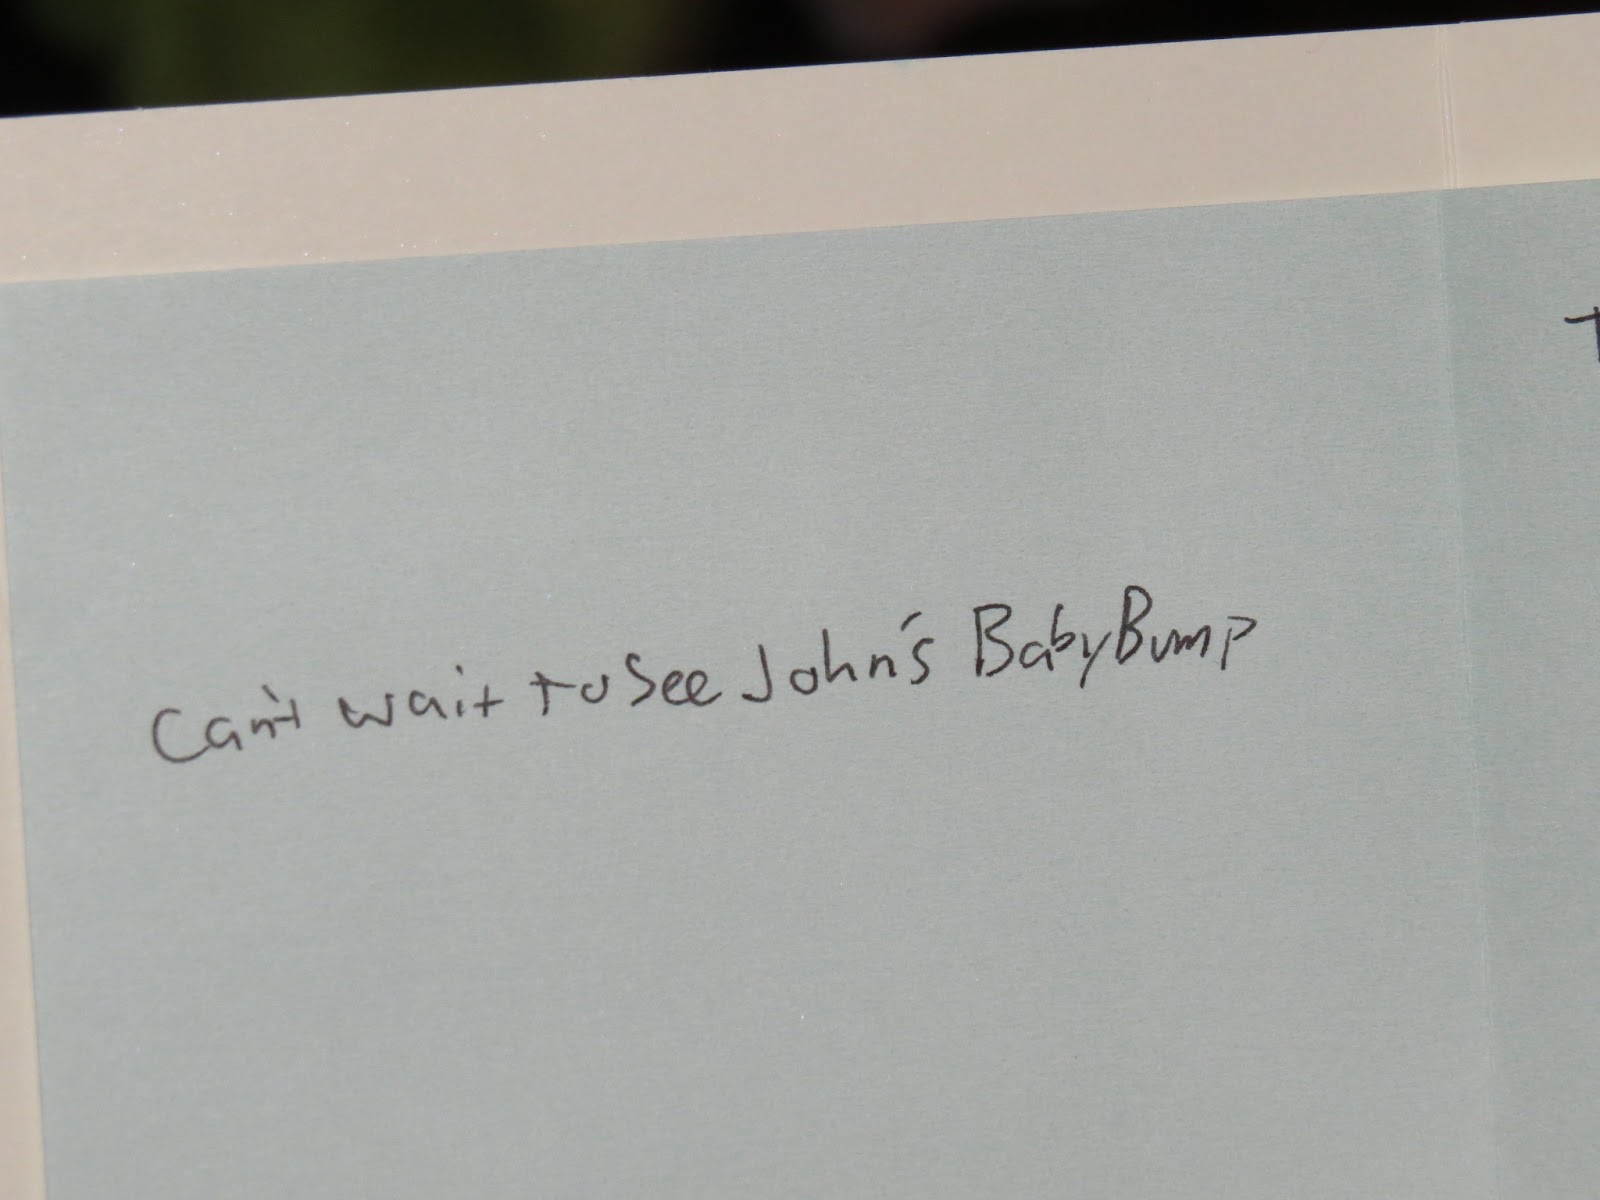 Can't wait to See John's Baby Bump
T